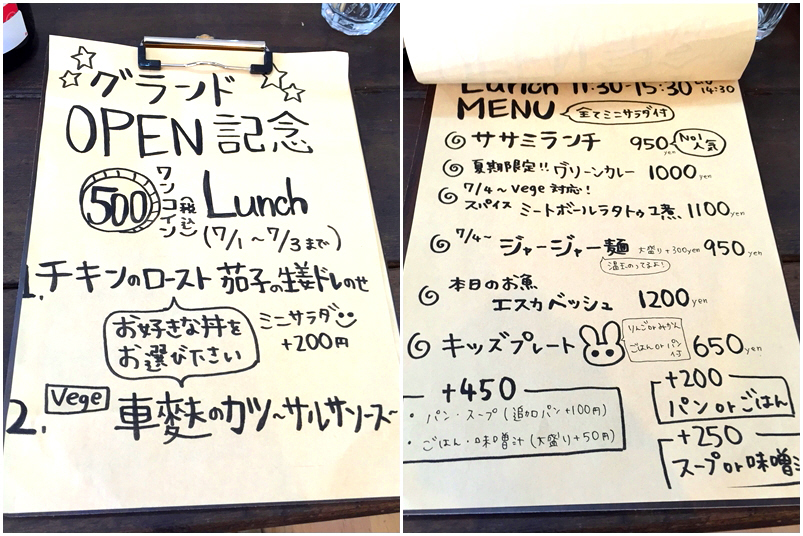 グランド
OPEN 記念
500
ワンコイン
(税込)
Lunch
(7/1～7/3まで)
1. チキンのロースト 茄子の生姜ドレのせ
お好きな丼を
お選び下さい
ミニサラダ
+200円
2. Vege 車麩のカツ～サルサソース～
Lunch 11:30-15:30 14:30
MENU 全てミニサラダ付
ササミランチ 950yen No1人気
夏期限定!! グリーンカレー 1000yen
7/4～Vege対応!
スパイス ミートボールラタトゥユ煮、1100yen
7/4～ ジャージャー麺 大盛り+300yen 950yen
温玉のってるよ!
本日のお魚
エスカベッシュ 1200yen
キッズプレート
りんごorみかん
ごはんorパン
付
650yen
+450
・パン・スープ(追加パン+100円)
・ごはん・味噌汁(大盛り+50円)
+200
パンorごはん
+250
スープor味噌汁